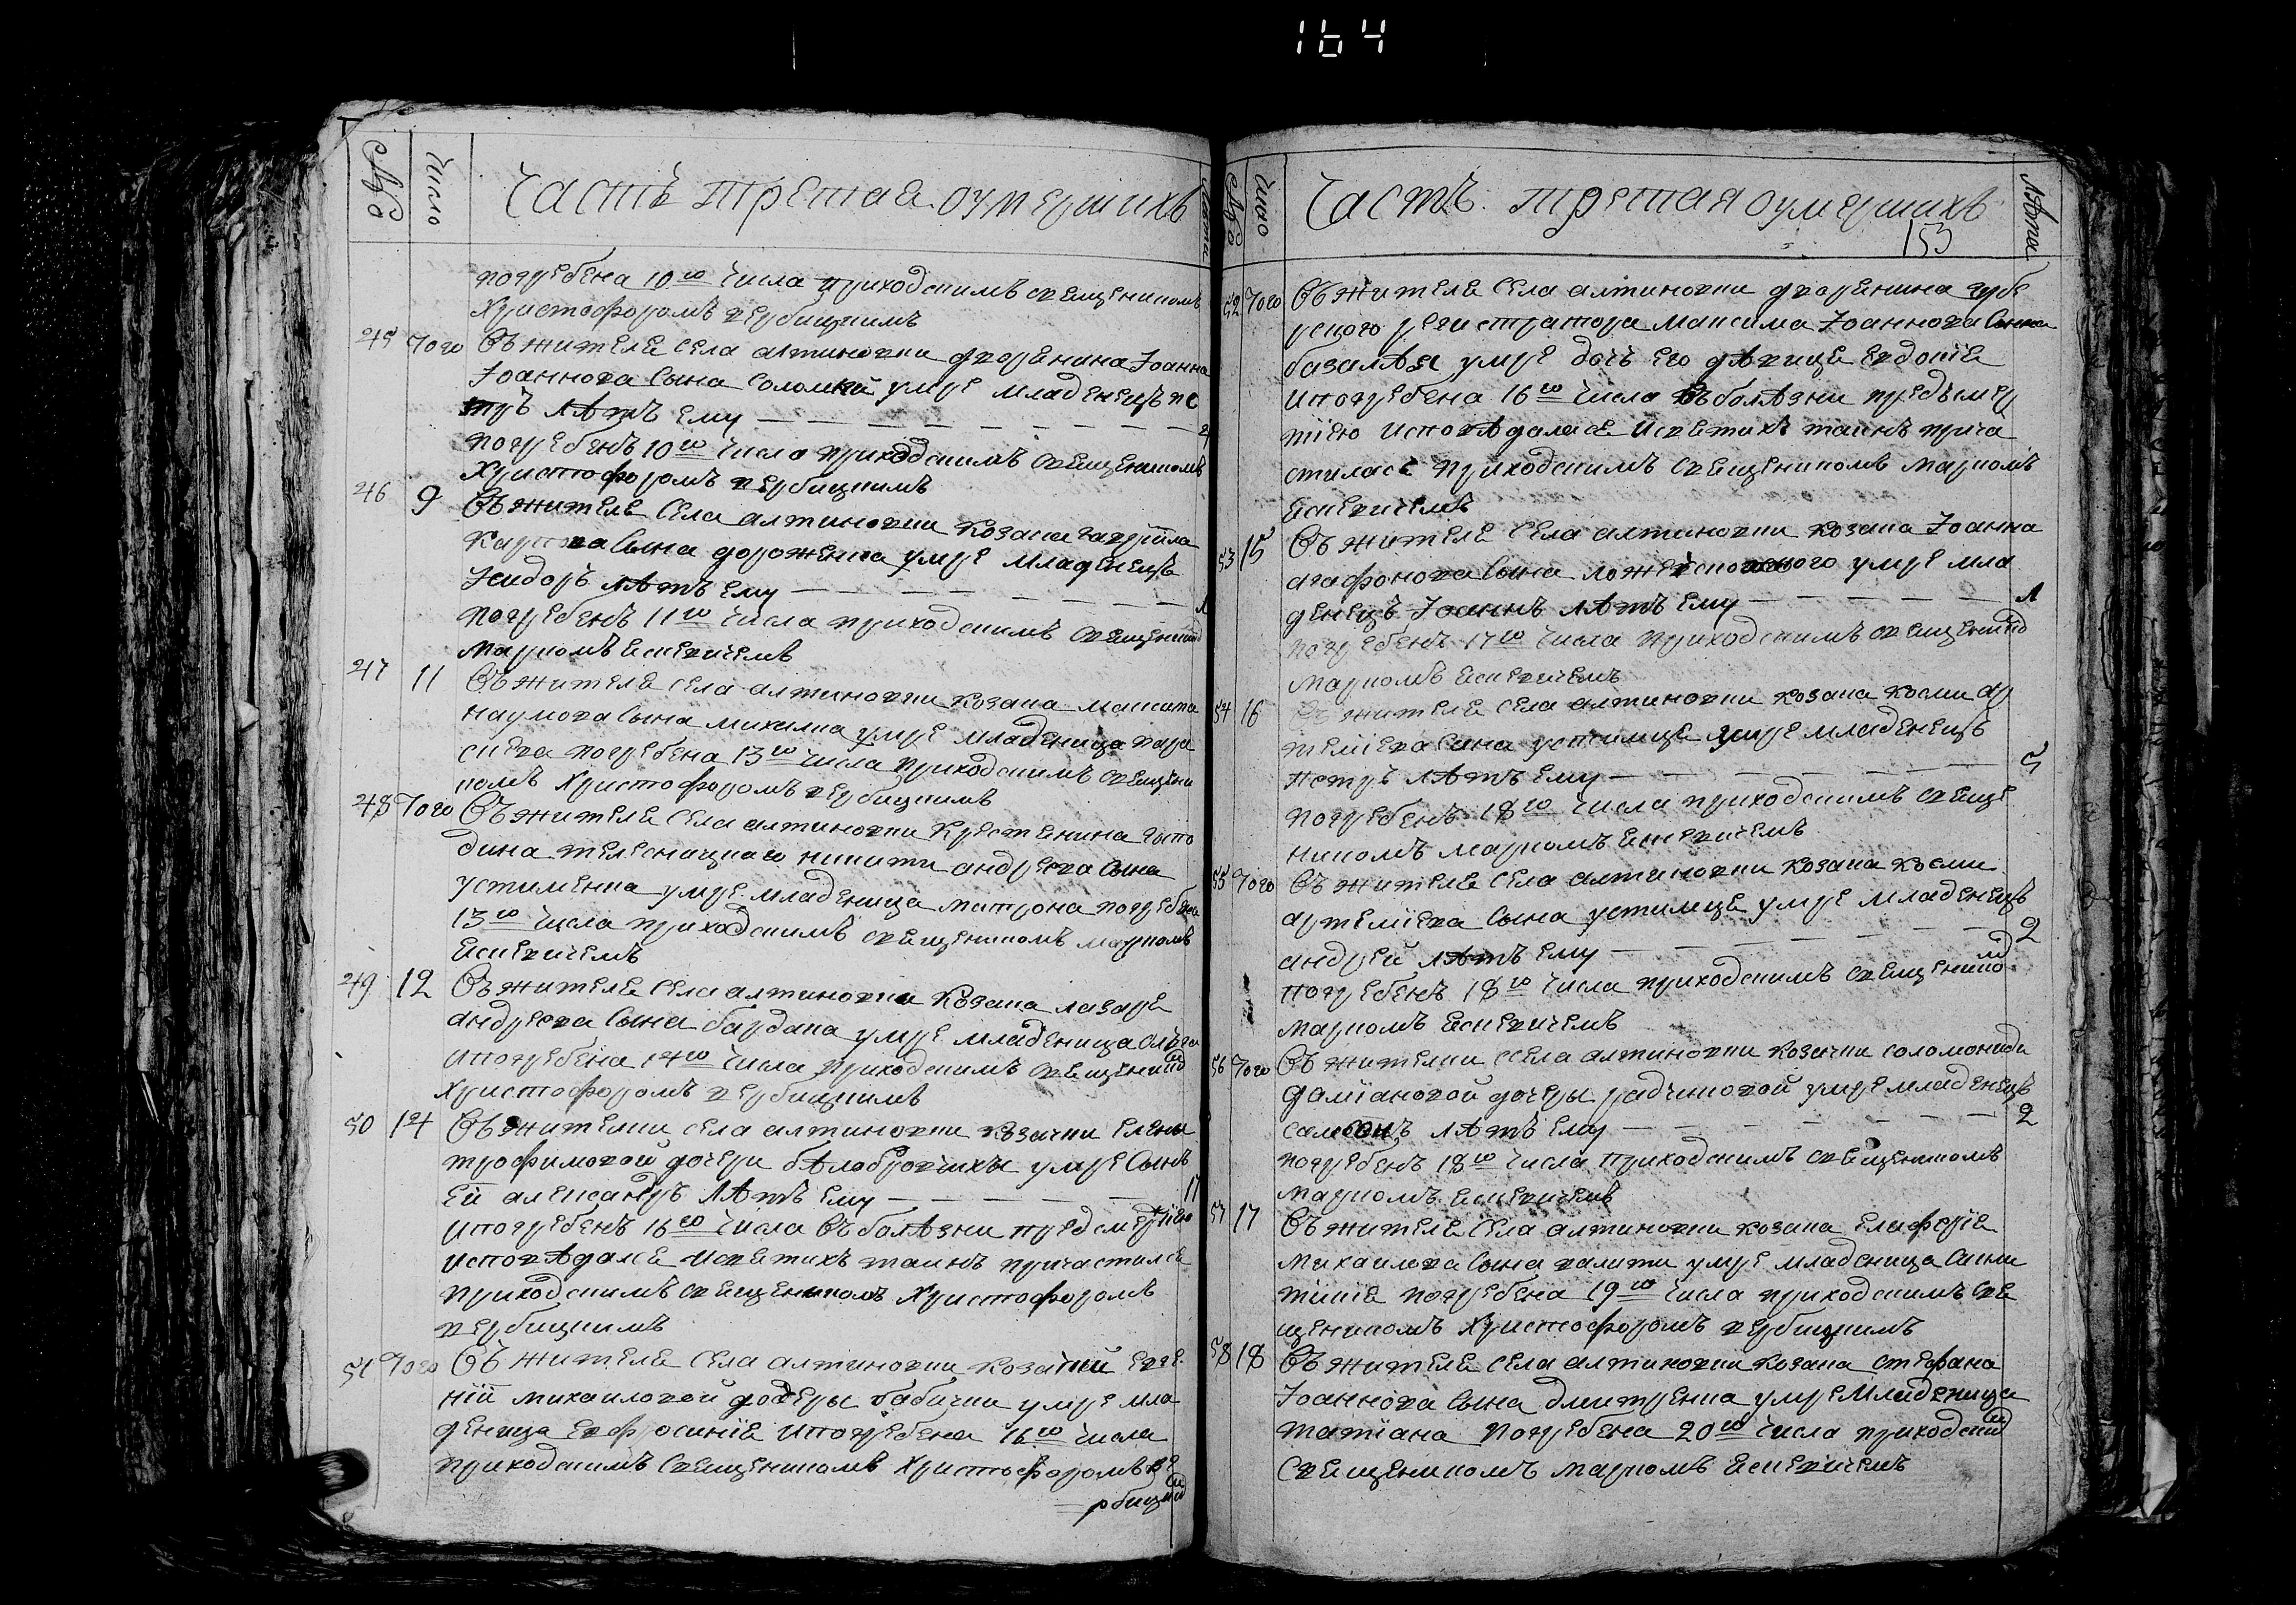 164
№ Число Часть третая оумершихъ Лѣта
погребена 10го числа приходскимъ священикомъ
Христофоромъ вербицкимъ
45 Того Въ жителя села алтиновки дворянина Іоанна
Іоаннова Сына Соломки умре младенецъ пе
тръ лѣтъ ему
погребенъ 10го числа приходскимъ священикомъ
Христофоромъ вербицкимъ
46 9 Въ жителя села алтиновки козака гавріила
Карпова Сына дорошенка умре младенецъ
Ісидоръ лѣтъ ему 1
погребенъ 11го числа приходскимъ священико
маркомъ Есиевичемъ
47 11 Въ жителя села алтиновки козака максима
наумова Сына михалка умре младеница пара
скева погребена 13го числа приходскимъ священи
комъ Христофоромъ вербицкимъ
48 Того Въ жителя села алтиновки крестянина госпо
дина никити андреева Сына
устименка умре младеница матрона погребена
13го числа приходскимъ священикомъ маркомъ
Есиевичемъ
49 12 Въ жителя села алтиновки козака лазаря
андреева Сына бардака умре младеница олга
ипогребена 14го числа приходскимъ священико
Христофоромъ вербицкимъ
50 14 Въ жителки села алтиновки козачки Елены
трофимовой дочери бѣлобровчихи умре Сынъ
Ей александръ лѣтъ ему 11
ипогребенъ 16го числа въ болѣзни предсмертію
исповѣдался исвятихъ таинъ причастился
приходскимъ священикомъ Христофоромъ
вербицкимъ
51 Того Въ жителя села алтиновки козачки Евге
ніи михаиловой дочеры бабички умре мла
деница Евфросиніе ипогребена 16го числа
приходскимъ Священикомъ Христофоромъ ве
рбицки
№ Число Часть третая оумершихъ Лѣта
153
52 Того Въ жителя села алтиновки дворянина губе
рского регистратора максима Іоаннова Сына
базалѣя умре дочь его дѣвица Евдокіе
ипогребена 16го числа въ болѣзни предъсмер
тію исповѣдалася исвятихъ таинъ прича
стилася приходскимъ священикомъ маркомъ
Есиевичемъ
53 15 Въ жителя села алтиновки козака Іоанна
агафонова Сына умре мла
денецъ Іоаннъ лѣтъ ему 1
погребенъ 17го числа приходскимъ священико
маркомъ Есиевичемъ
54 16 Въ жителя села алтиновки козака косми ар
теміева Сына устимця умре младенецъ
петръ лѣтъ ему 5
погребенъ 18го числа приходскимъ свяще
никомъ маркомъ Есиевичемъ
55 Того Въ жителя села алтиновки козака косми
артеміева Сына устимця умре младенецъ
андрей лѣтъ ему 2
погребенъ 18го числа приходскимъ священико
маркомъ Есиевичемъ
56 Того Въ жителки села алтиновки козачки соломониди
даміановой дочеры радчиковой умре младенецъ
самсонъ лѣтъ ему 2
погребенъ 18го числа приходскимъ священикомъ
маркомъ Есиевичемъ
57 17 Въ жителя села алтиновки козака Елеферіе
михаилова Сына калити умре младеница Сикли
тикіе погребена 19го числа приходскимъ Свя
щеникомъ Христофоромъ вербицкимъ
58 18 Въ жителя села алтиновки козака стефана
Іоаннова Сына дмитренка умре младеница
татіана погребена 20го числа приходски
Священикомъ маркомъ Есиевичемъ